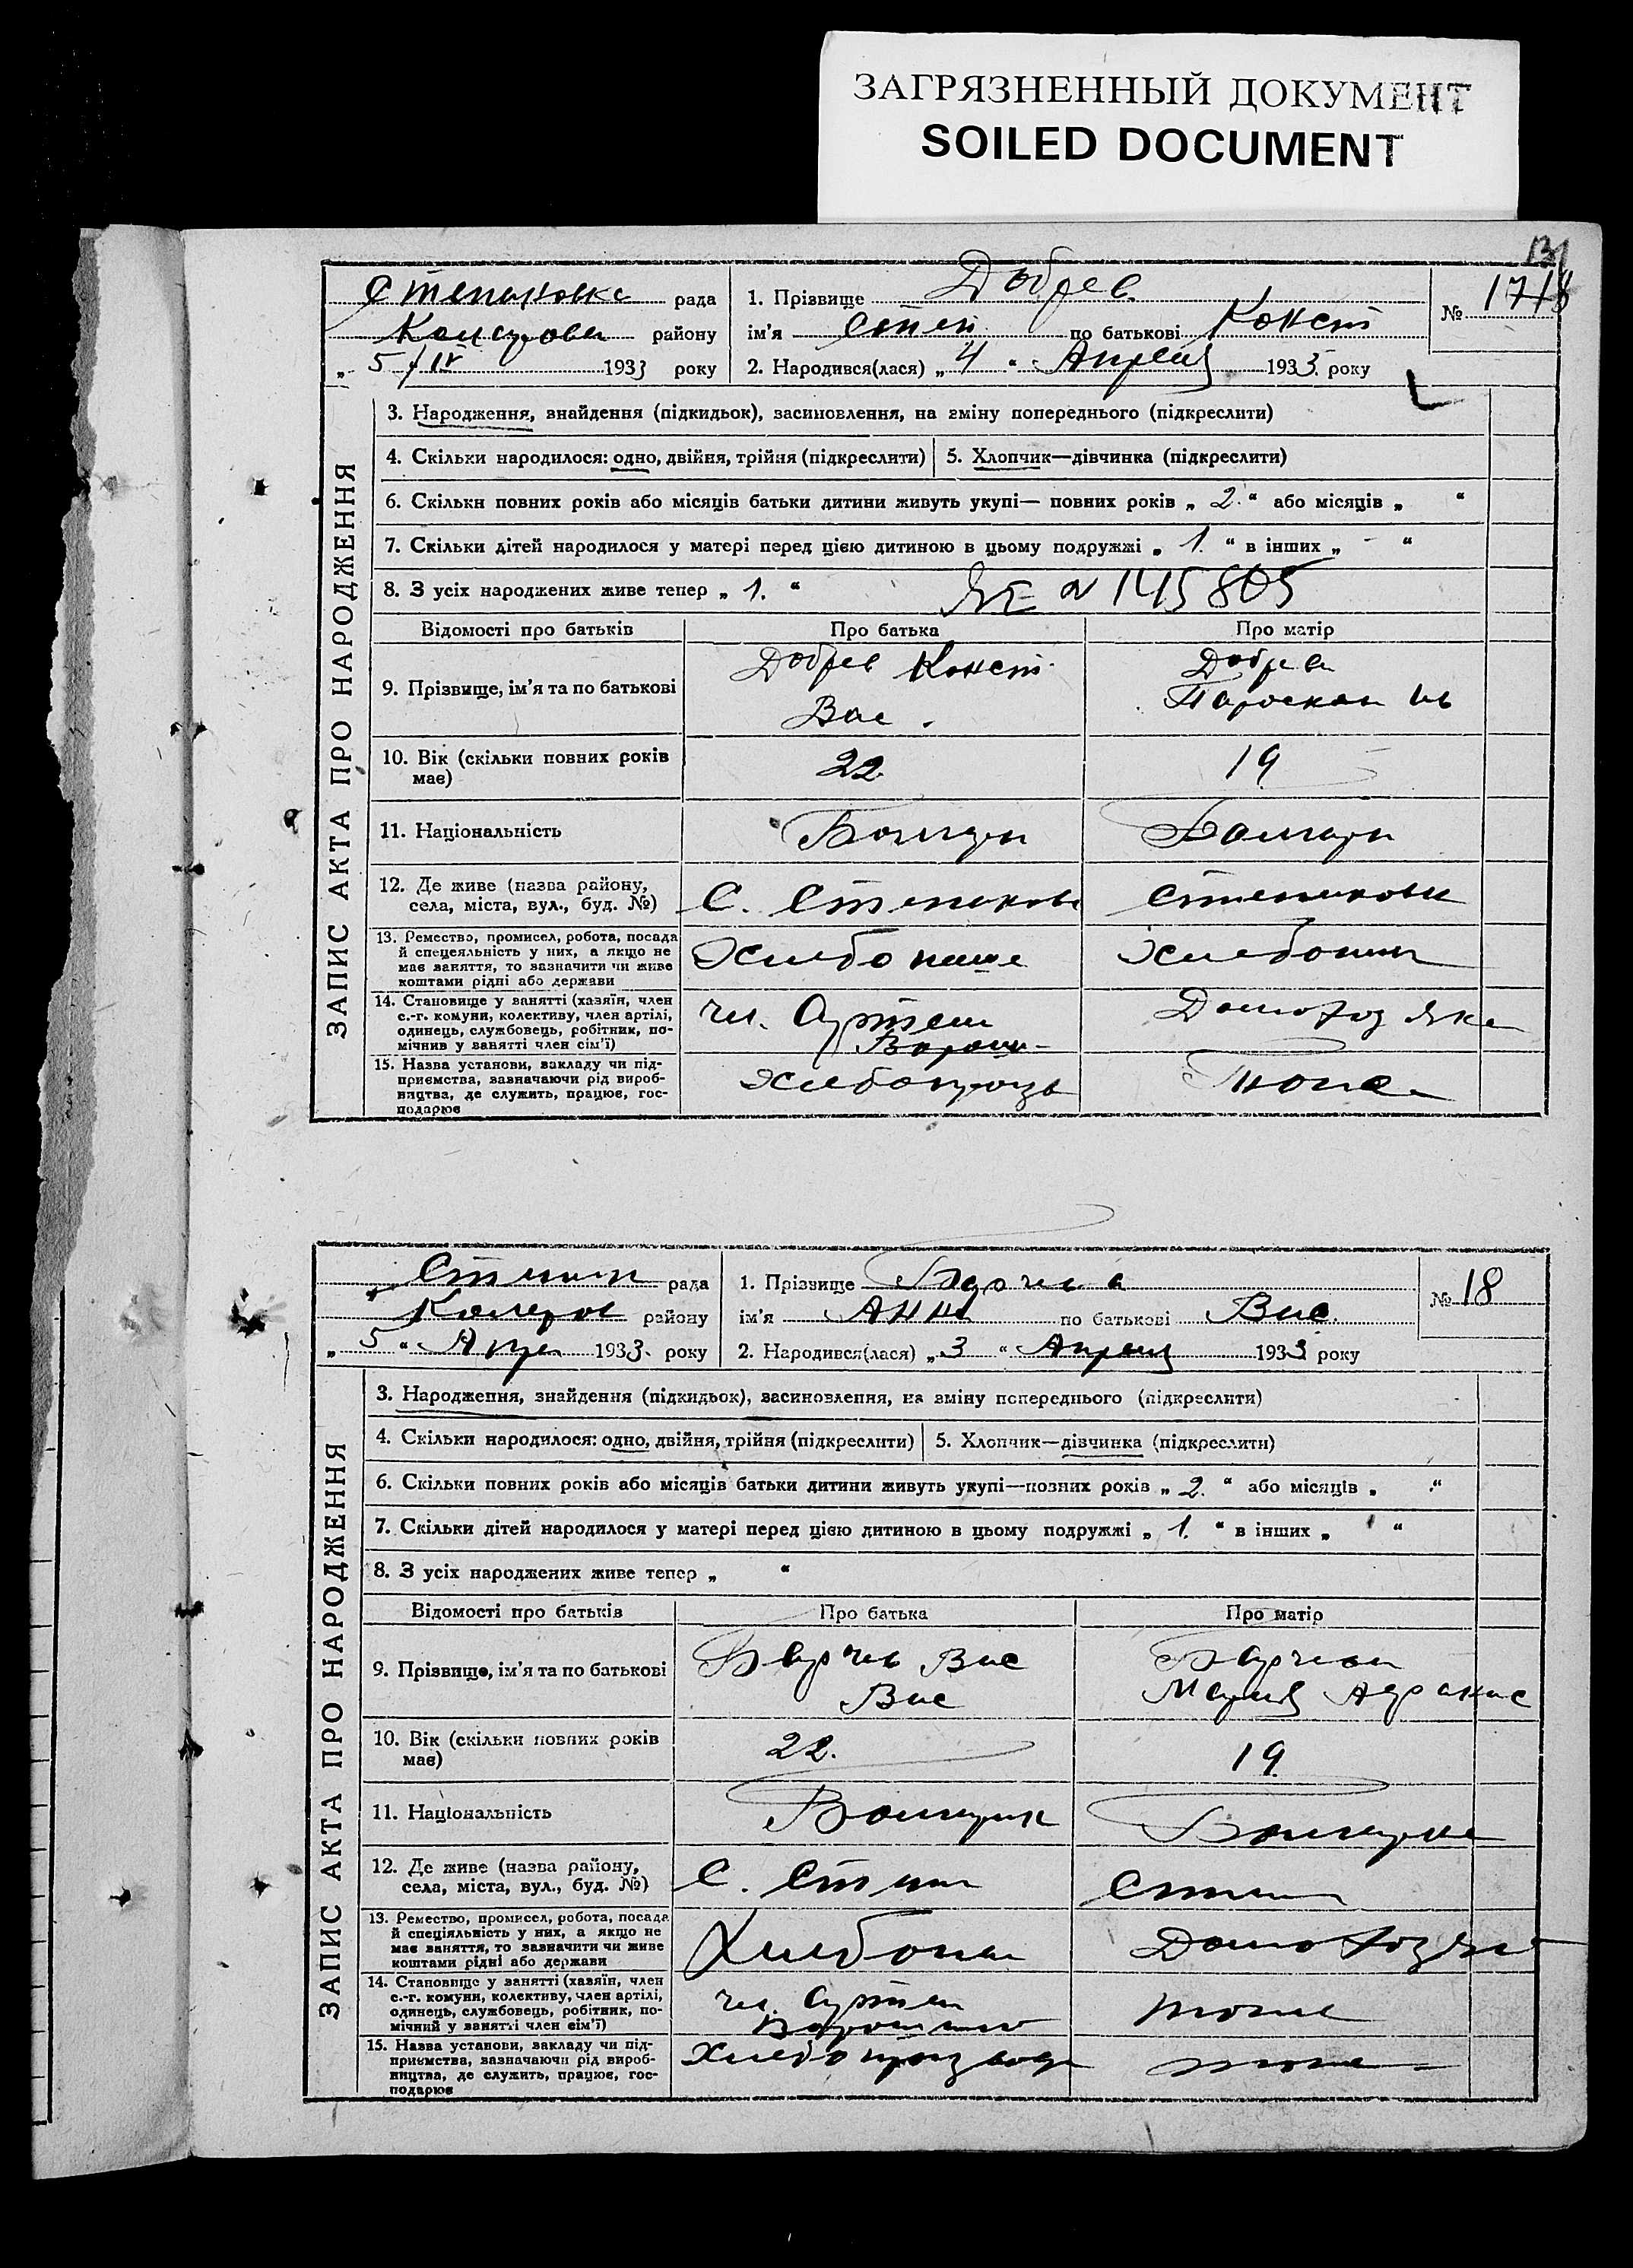 ЗАГРЯЗНЕННЫЙ ДОКУМЕНТ
SOILED DOCUMENT
131
ЗАПИС АКТА ПРО НАРОДЖЕННЯ
рада
району
„ 5/IV 1933 року
1. Прізвище Добрев.
ім’я Степ по батькові Конст
2. Народився(лася) „ 4 “ Апреля 1933 року
№ 17
3. Народження, знайдення (підкидьок), засиновлення, на зміну попереднього (підкреслити)
4. Скільки народилося: одно, двійня, трійня (підкреслити)
5. Хлопчик—дівчинка (підкреслити)
6. Скільки повних років або місяців батьки дитини живуть укупі— повних років „ 2. “ або місяців „ “
7. Скільки дітей народилося у матері перед цією дитиною в цьому подружжі „ 1. “ в інших „ - “
8. З усіх народжених живе тепер „ 1. “
145805
Відомості про батьків
Про батька
Про матір
9. Прізвище, ім’я та по батькові
Добрев Конст
Вас.
Добрева
10. Вік (скільки повних років
має)
22
19
11. Національність
Болгары
Болгары
12. Де живе (назва району,
села, міста, вул., буд. №)
С.
13. Ремество, промисел, робота, посада
й спецеяльність у них, а якщо не
має заняття, то зазначити чи живе
коштами рідні або держави
14. Становище у занятті (хазяїн, член
с.-г. комуни, колективу, член артілі,
одинець, службовець, робітник, по-
мічник у занятті член сім’ї)
чл. Артели
15. Назва установи, закладу чи під-
приємства, зазначаючи рід вироб-
ництва, де служить, працює, гос-
подарює
Тоже
ЗАПИС АКТА ПРО НАРОДЖЕННЯ
рада
району
„ 5 “ Апре 1933. року
1. Прізвище
ім’я Анна по батькові Вас.
2. Народився(лася) „ 3 “ Апреля 1933 року
№ 18
3. Народження, знайдення (підкидьок), засиновлення, на зміну попереднього (підкреслити)
4. Скільки народилося: одно, двійня, трійня (підкреслити)
5. Хлопчик—дівчинка (підкреслити)
6. Скільки повних років або місяців батьки дитини живуть укупі—повних років „ 2. “ або місяців „ “
7. Скільки дітей народилося у матері перед цією дитиною в цьому подружжі „ 1. “ в інших „ “
8. З усіх народжених живе тепер „ “
Відомості про батьків
Про батька
Про матір
9. Прізвище, ім’я та по батькові
Вас
Вас
Мария
10. Вік (скільки повних років
має)
22.
19
11. Національність
12. Де живе (назва району,
села, міста, вул., буд. №)
С.
13. Ремество, промисел, робота, посада
й спеціяльність у них, а якщо не
має заняття, то зазначити чи живе
коштами рідні або держави
14. Становище у занятті (хазяїн, член
с.-г. комуни, колективу, член артілі,
одинець, службовець, робітник, по-
мічний у занятті член сім’ї)
чл. Артели
тоже
15. Назва установи, закладу чи під-
приємства, зазначаючи рід вироб-
ництва, де служить, працює, гос-
подарює
тоже